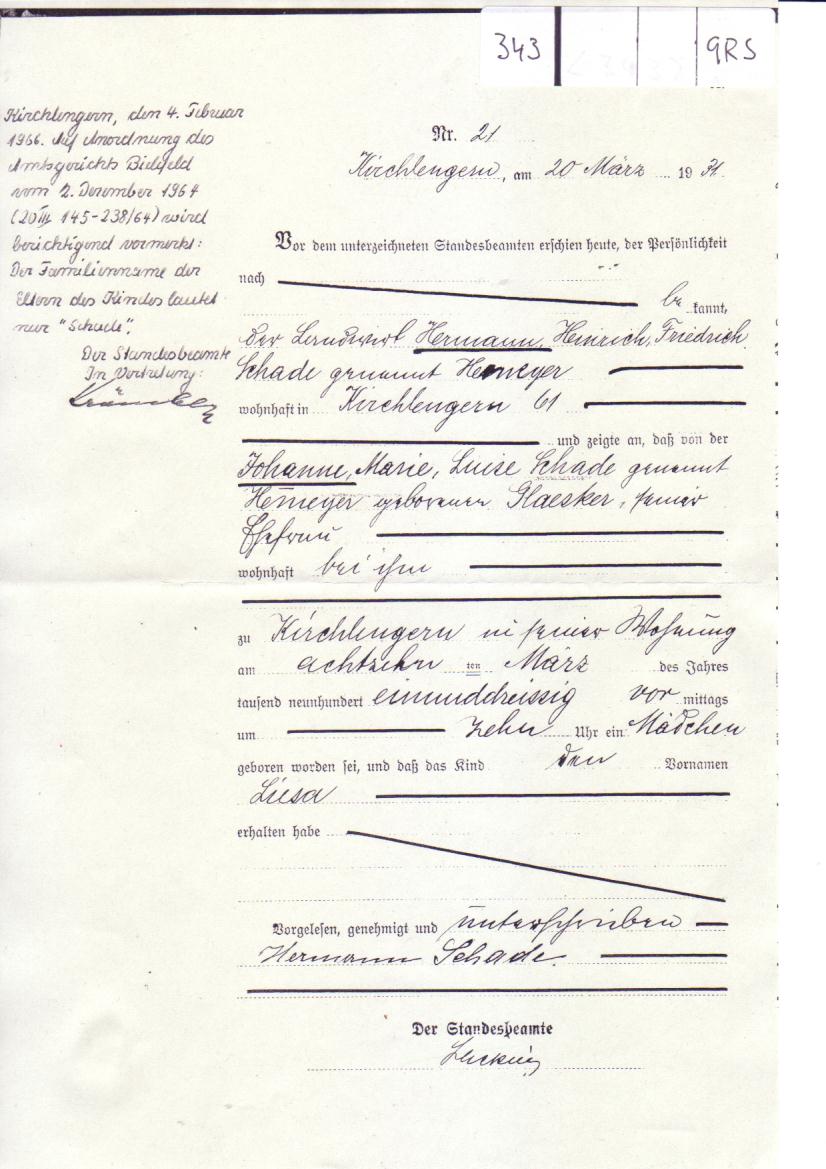 343 9RS
Kirchlengern, den 4. Februar
1966. Auf Anordnung des
Amtsgerichts Bielefeld
vom 2. Dezember 1964
(20 III 145-238/64) wird
berichtigend vermerkt:
Der Familienname der
Eltern des Kindes lautet
nur "Schade".
Der Standesbeamte
In Vertretung:
Nr. 21
Kirchlengern, am 20 März 19 31.
Vor dem unterzeichneten Standesbeamten erschien heute, der Persönlichkeit
nach
be kannt,
der Landwirt Hermann, Heinrich, Friedrich
Schade genannt Hemeyer
wohnhaft in Kirchlengern 61
und zeigte an, daß von der
Johanne, Marie, Luise Schade genannt
Hemeyer geborenen Glaesker, seiner
Ehefrau
wohnhaft bei ihm
zu Kirchlengern in seiner Wohnung
am achtzehn ten März des Jahres
tausend neunhundert einunddreissig vor mittags
um zehn Uhr ein Mädchen
geboren worden sei, und daß das Kind den Vornamen
Liesa
erhalten habe
Vorgelesen, genehmigt und unterschrieben
Hermann Schade.
Der Standesbeamte